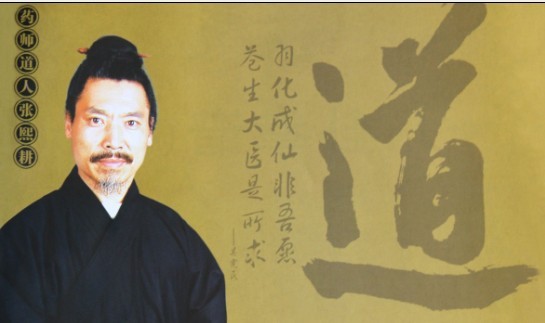 道
羽化成仙非吾愿
苍生大医是所求
药师道人张熙耕